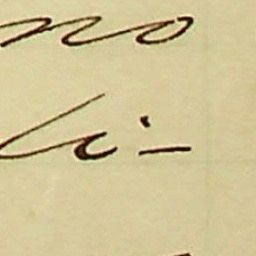 no
li-